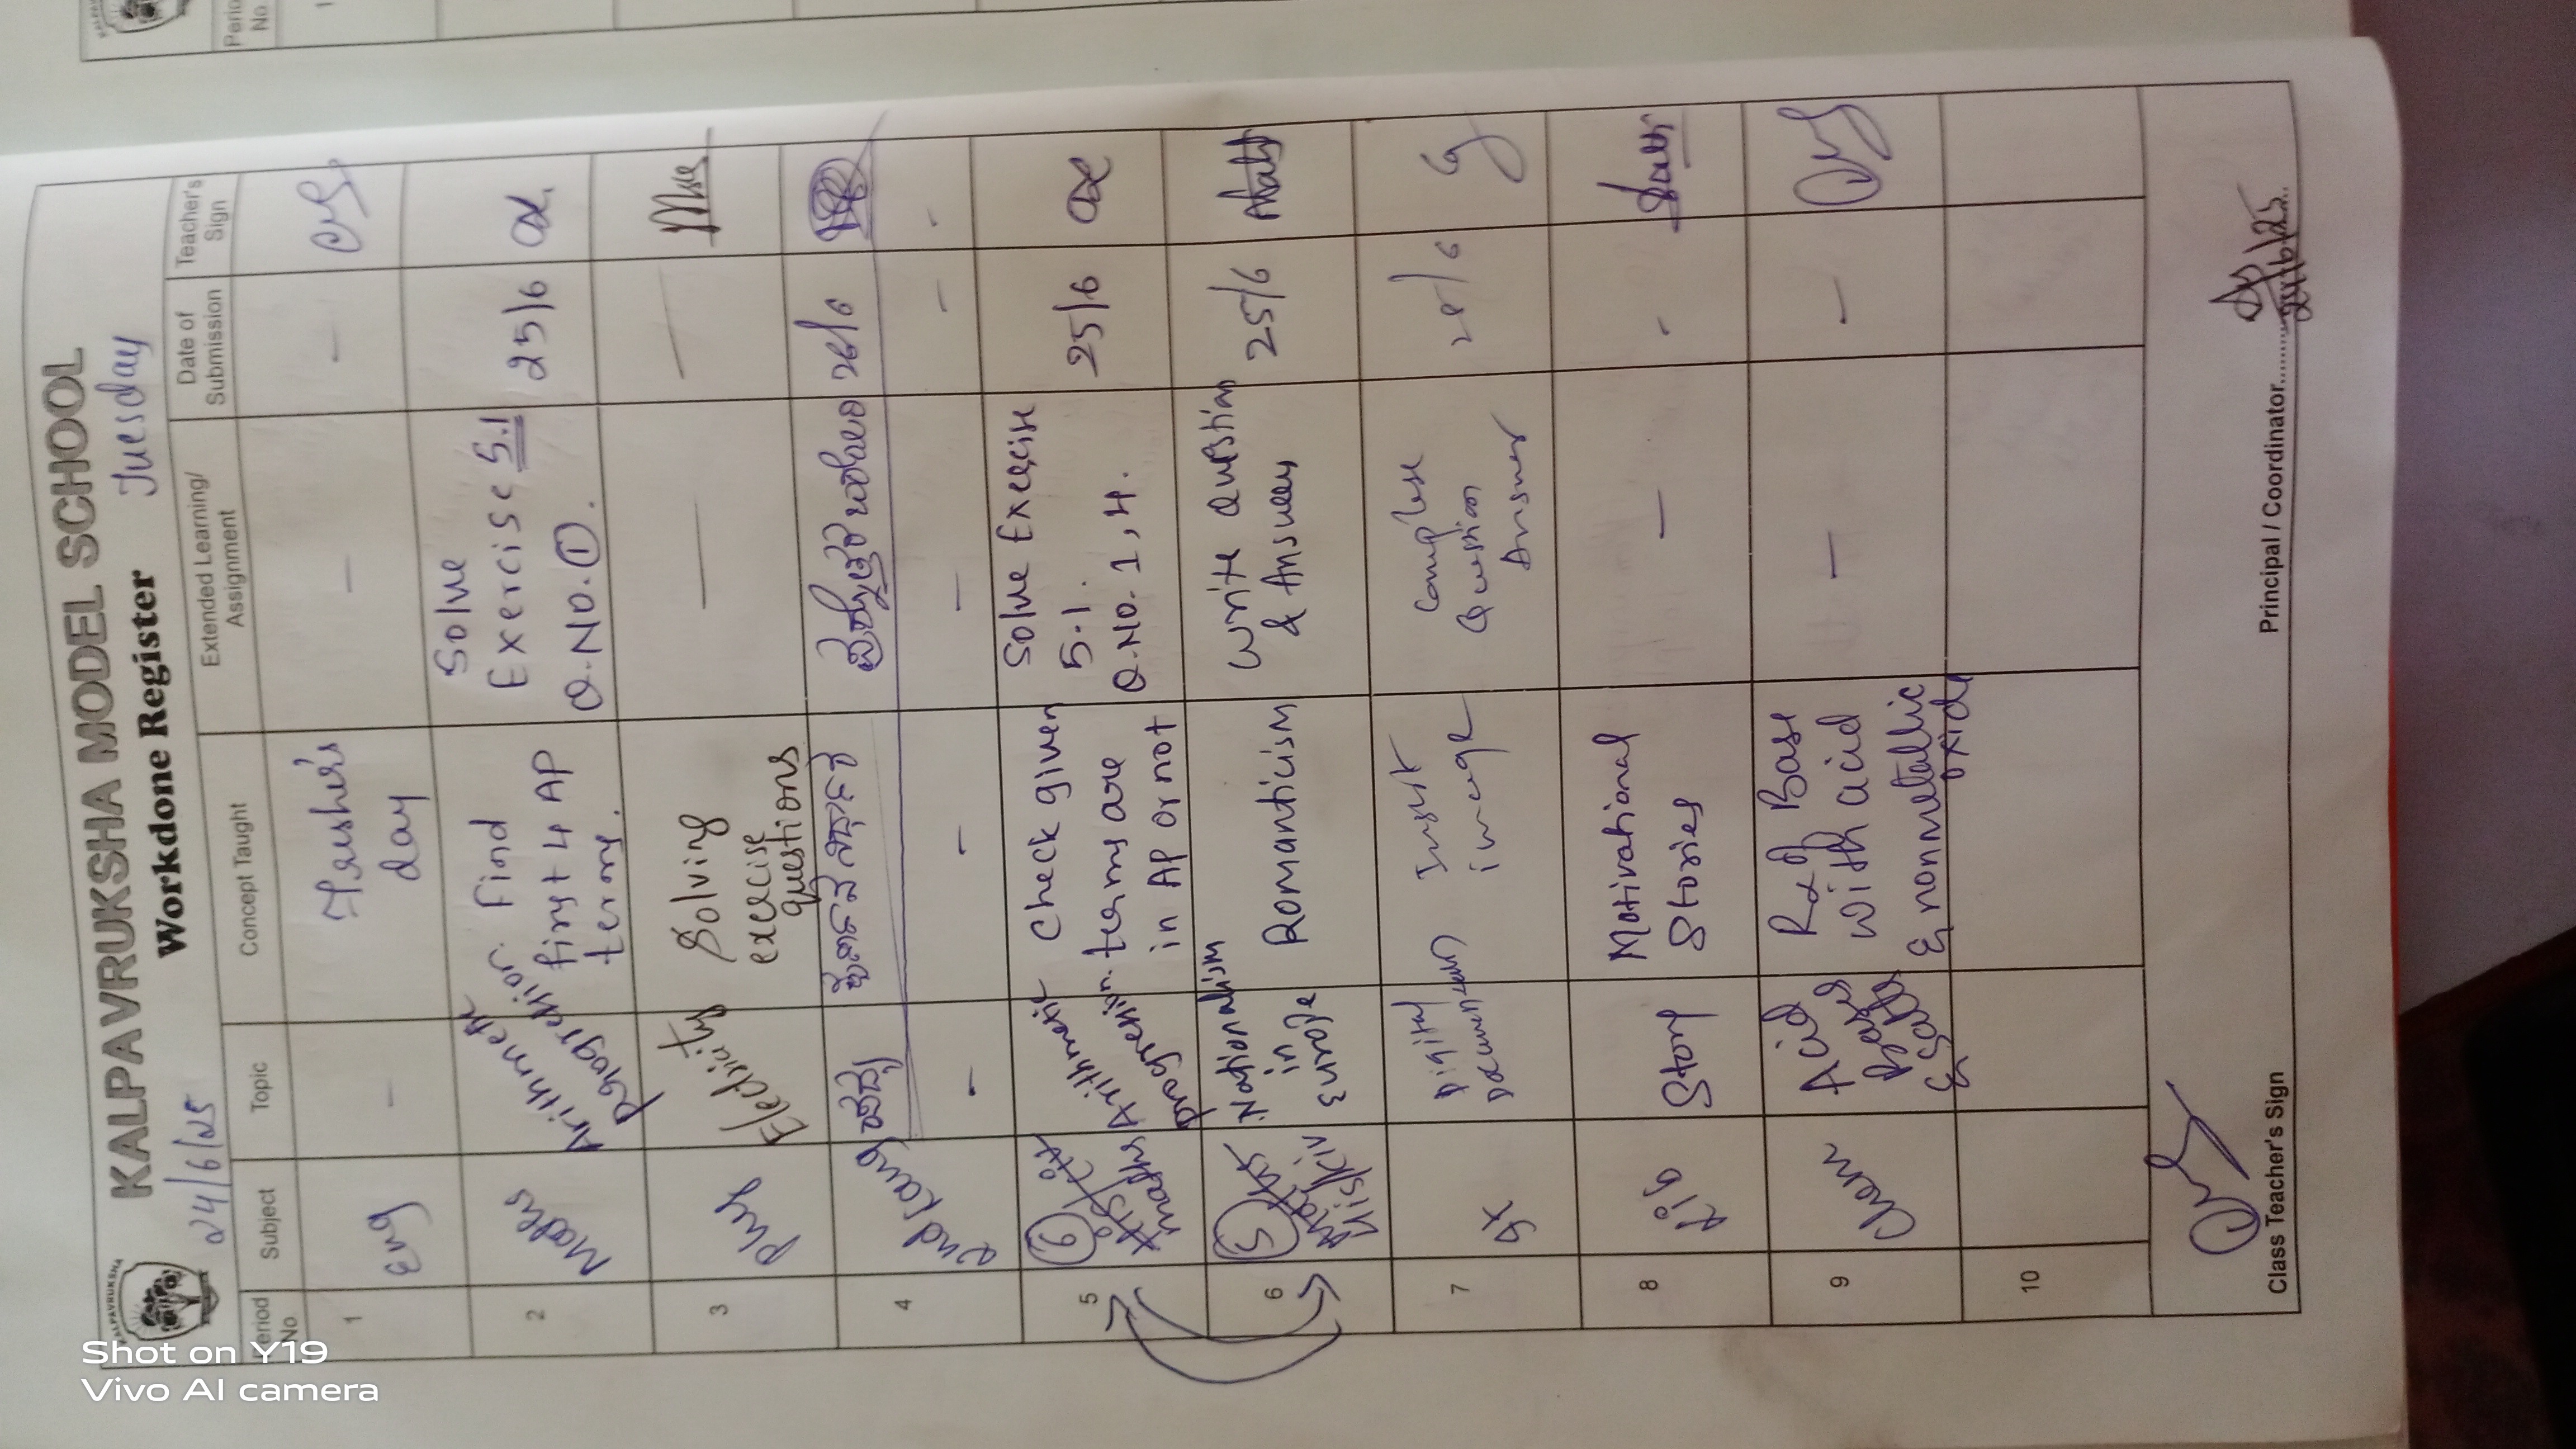 KALPAVRUKSHA
KALPAVRUKSHA MODEL SCHOOL
24/6/25 Workdone Register Tuesday
Period No. Subject Topic Concept Taught Extended Learning/ Assignment Date of Submission Teacher's Sign
1 Eng - Fresher's day - -
2 Maths Arithmetic Progression Find first 4 AP terms. Solve Exercise 5.1 Q.No. 1. 25/6
3 Phy Electricity Solving exercise questions — —
4 2nd Lang 26/6
- - - - -
5 6 maths Arithmetic progression. Check given terms are in AP or not Solve Exercise 5.1. Q.No. 1, 4. 25/6
6 5 Nationalism in Europe Romanticism write question & Answers 25/6
7 Digital Insert image Complete Question Answer
8 Lib Story Motivational Stories - -
9 Chem Acid Bases & Salts Rxn of Base with acid & nonmetallic oxide - -
10
Class Teacher's Sign Principal / Coordinator 24/6/25
Shot on Y19
Vivo AI camera